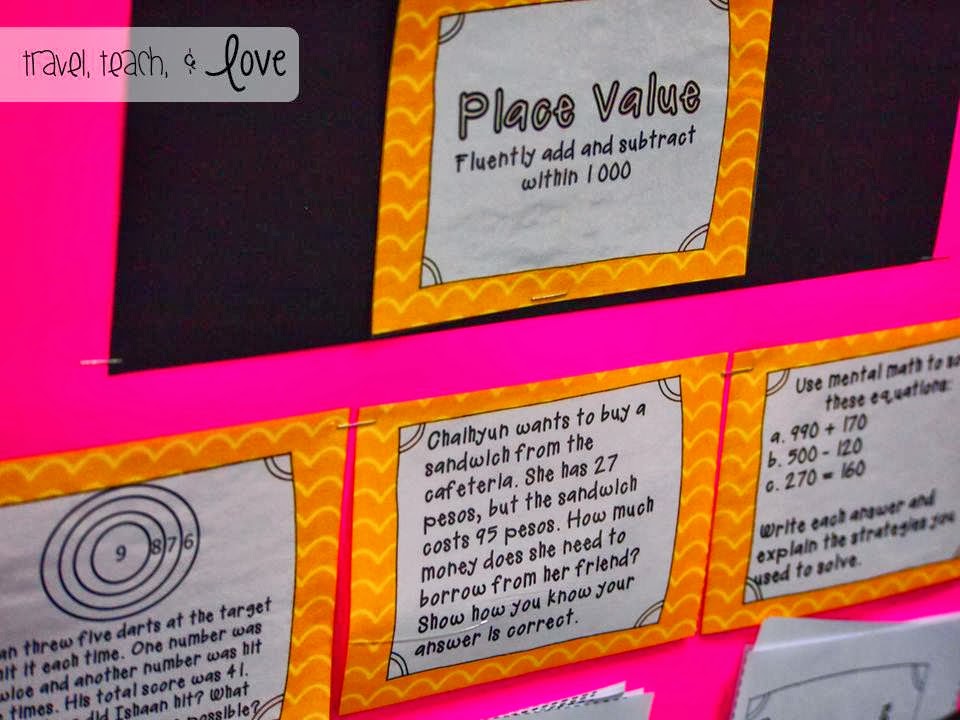 travel, teach, & love
Place Value
Fluently add and subtract
within 1000
9 8 7 6
an threw five darts at the target
hit it each time. One number was
and another number was hit
times. His total score was 41.
did Ishaan hit? What
possible?
Chaihyun wants to buy a
sandwich from the
cafeteria. She has 27
pesos, but the sandwich
costs 95 pesos. How much
money does she need to
borrow from her friend?
Show how you know your
answer is correct.
Use mental math to so
these equations:
a. 990 + 170
b. 500 - 120
c. 270 = 160
Write each answer and
explain the strategies you
used to solve.